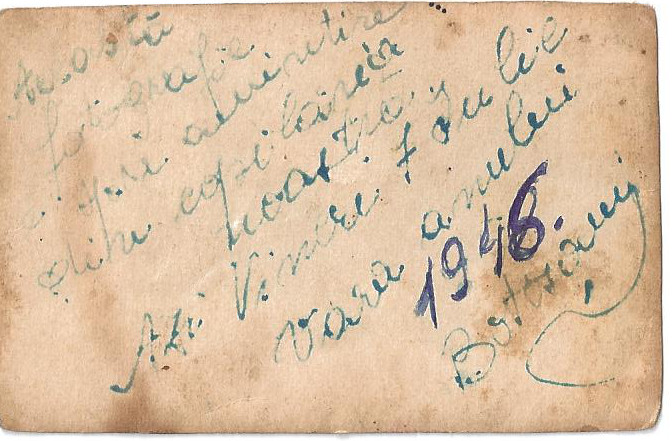 Această
fotografie
e spre amintire
din copilăria
noastră
Azi Vineri 7 Iulie
Vara anului
1946.
Botosani